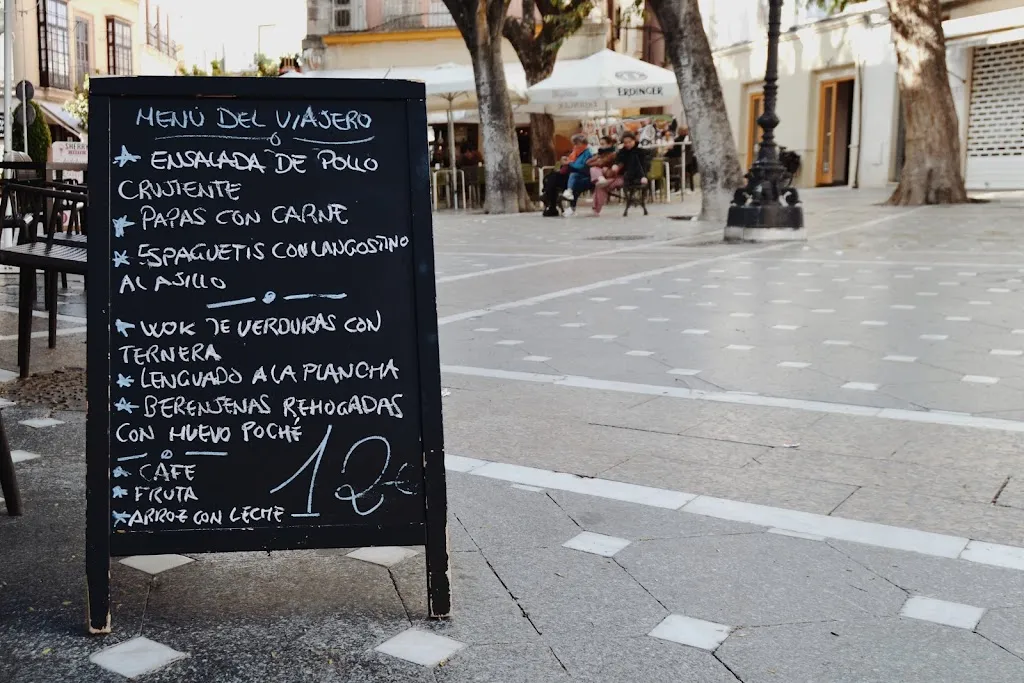 MENÚ DEL VIAJERO
* ENSALADA DE POLLO
CRUJIENTE
* PAPAS CON CARNE
* ESPAGUETIS CON LANGOSTINO
AL AJILLO
* WOK DE VERDURAS CON
TERNERA
* LENGUADO A LA PLANCHA
* BERENJENAS REHOGADAS
CON HUEVO POCHÉ
* CAFE
* FRUTA
* ARROZ CON LECHE
12€
ERDINGER